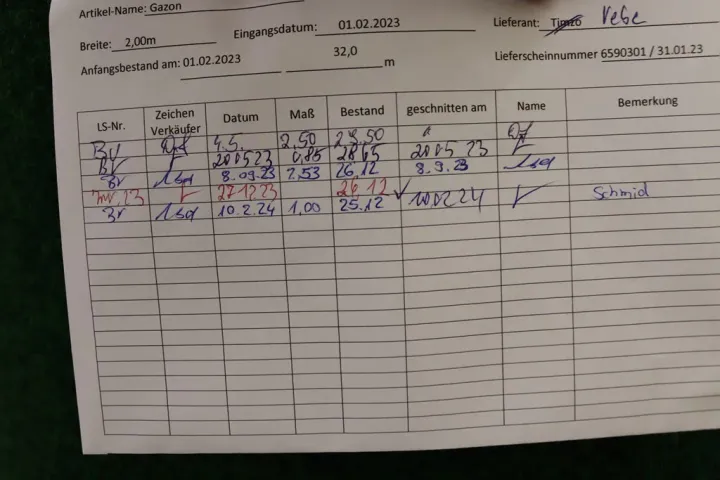 Artikel-Name: Gazon
Breite: 2,00m Eingangsdatum: 01.02.2023 Lieferant: Timeo Vebe
Anfangsbestand am: 01.02.2023 32,0 m Lieferscheinnummer 6590301 / 31.01.23
LS-Nr. Zeichen Verkäufer Datum Maß Bestand geschnitten am Name Bemerkung
4.5. 2,50 29.50
200523 0,85 2865 200523
Br 8.09.23 2,53 26,12 8.9.23
Inv. 23 271223 26 12
Br 10.2.24 1,00 25.12 100224 Schmid